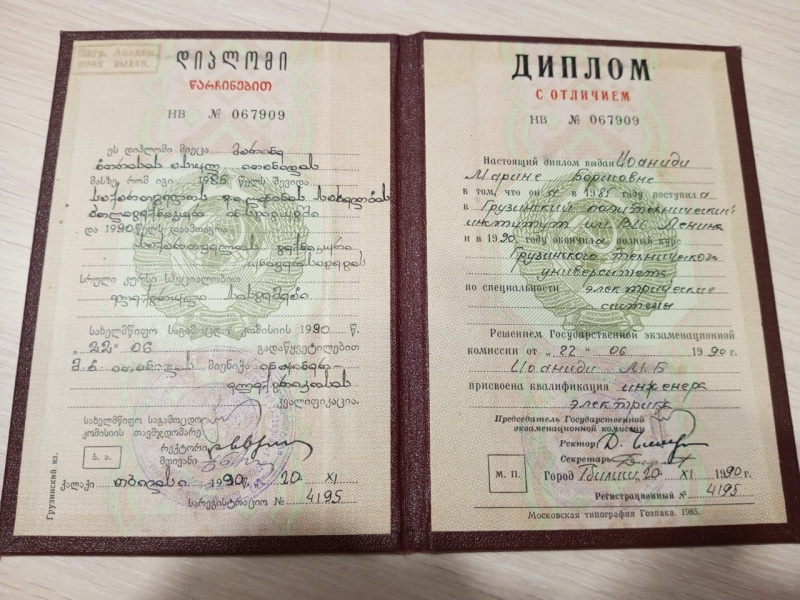 დიპლომი
წარჩინებით
НВ № 067909
ეს დიპლომი მიეცა მარინე
მასზე რომ იგი 1985 წელს შევიდა
საქართველოს
პოლიტექნიკურ ინსტიტუტში
და 1990 წელს დაამთავრა
საქართველოს ტექნიკური
უნივერსიტეტის
სრული კურსი სპეციალობით
ელექტრული სისტემები
სახელმწიფო საგამოცდო კომისიის 1990 წ.
„22“ 06 გადაწყვეტილებით
მიენიჭა ინჟინერ
ელექტრიკოსის
კვალიფიკაცია.
სახელმწიფო საგამოცდო
კომისიის თავმჯდომარე
რექტორი
მდივანი
ბ. ა.
ქალაქი თბილისი 1990 წ. 20 XI
სარეგისტრაციო № 4195
Грузинский яз.
ДИПЛОМ
С ОТЛИЧИЕМ
НВ № 067909
Настоящий диплом выдан Иоаниди
Марине Борисовне
в том, что она в 1985 году поступила
в Грузинский политехнический
институт им. В.И. Ленина
и в 1990 году окончила полный курс
Грузинского технического
университета
по специальности электрические
системы
Решением Государственной экзаменационной
комиссии от „22“ 06 1990 г.
Иоаниди М.Б
присвоена квалификация инженера
электрика
Председатель Государственной
экзаменационной комиссии
Ректор
Секретарь
М. П. Город Тбилиси, 20 XI 1990 г.
Регистрационный № 4195
Московская типография Гознака. 1985.